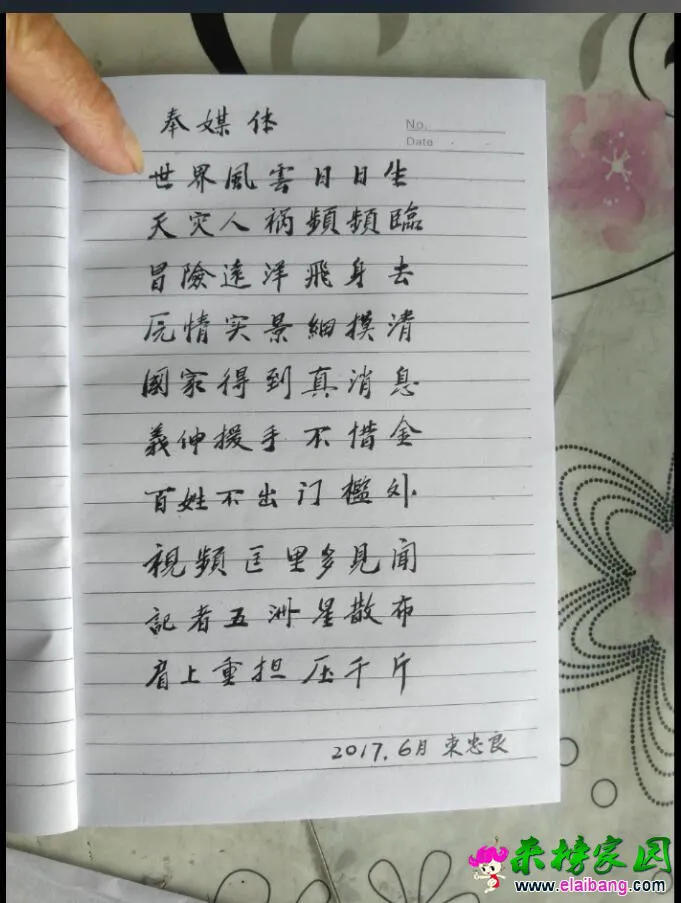 奉媒体
No.
Date
世界風雲日日生
天灾人祸頻頻臨
冒險遠洋飛身去
灾情实景細摸清
國家得到真消息
義伸援手不惜金
百姓不出门檻外
視頻匡里多見聞
記者五洲星散布
肩上重担压千斤
2017.6月 束忠良
来榜家园
www.elaibang.com